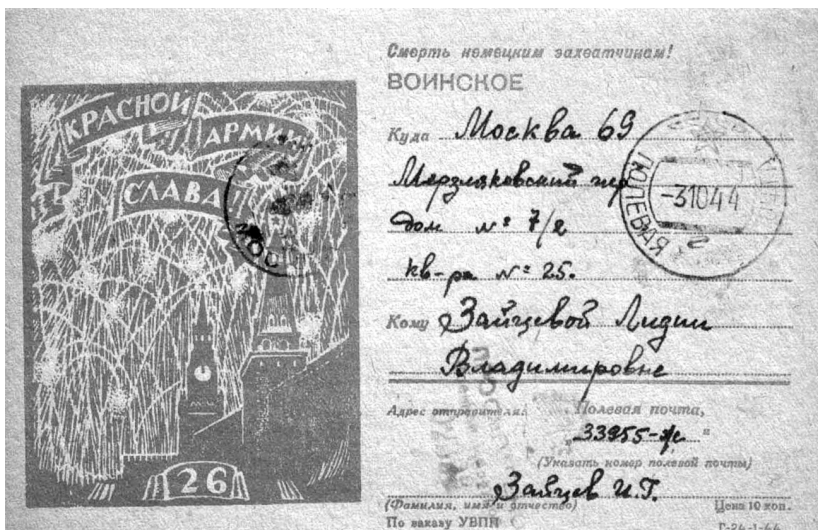 КРАСНОЙ
АРМИИ
СЛАВА
МОС
26
Смерть немецким захватчикам!
ВОИНСКОЕ
Куда Москва 69
Мерзляковский пер
дом № 7/2
кв-ра № 25.
Кому Зайцевой Лидии
Владимировне
ПОЛЕВАЯ
-31044
Адрес отправителя: Полевая почта,
„33955-
(Указать номер полевой почты)
Зайцев И.Г.
(Фамилия, имя и отчество)
Цена 10 коп.
По заказу УВПП
Г-24-1-44